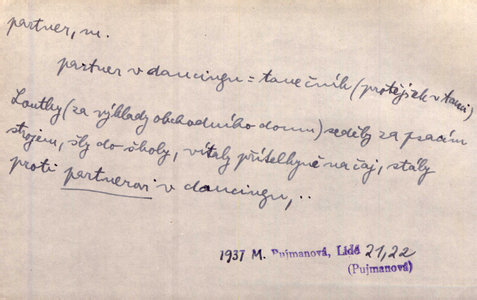 partner, m.
partner v dancingu = tanečník (protějšek v tanci)
Loutky (za výklady obchodního domu) seděly za psacím
strojem, šly do školy, vítaly přítelkyně na čaj, stály
proti partnerovi v dancingu, ..
1937 M. Pujmanová, Lidé 21,22
(Pujmanová)